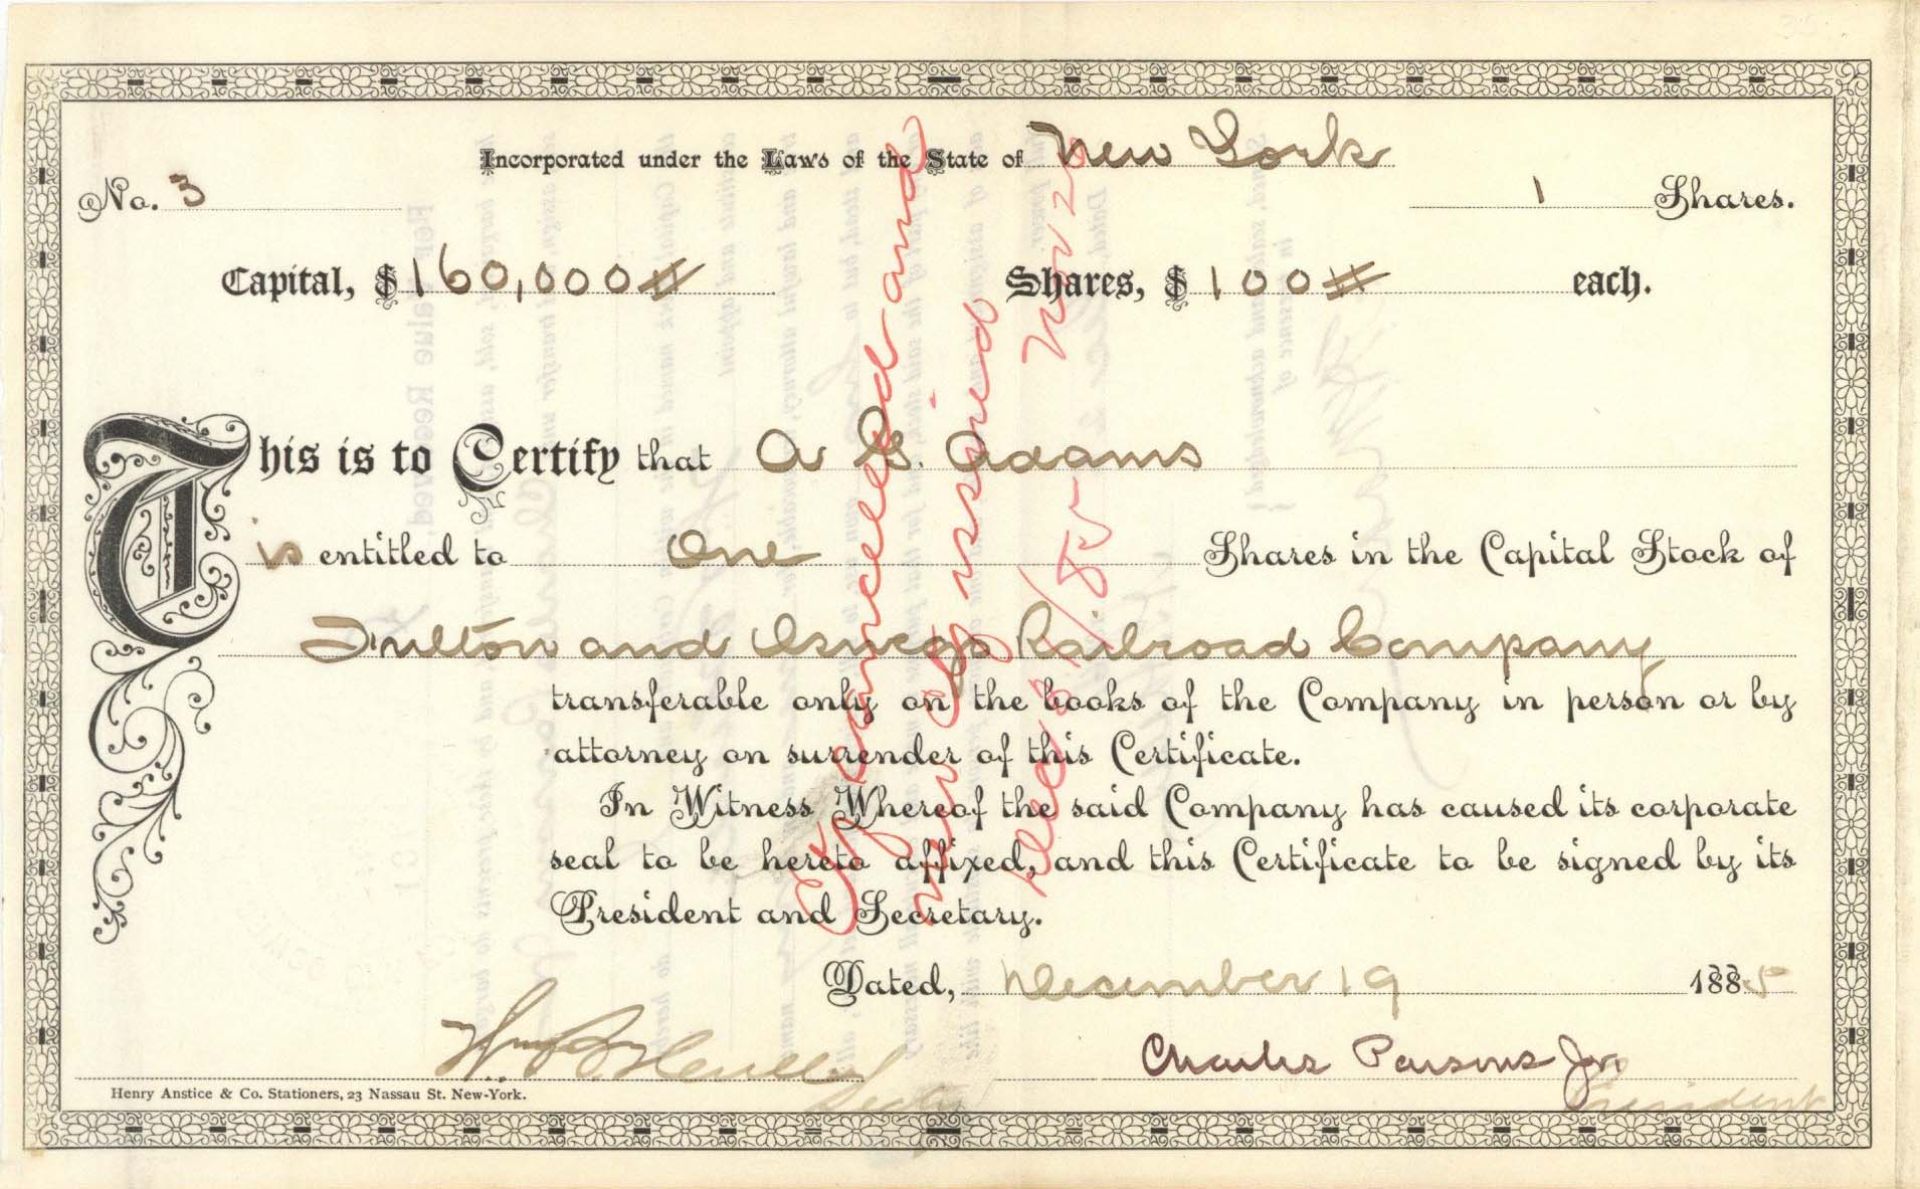 Incorporated under the Laws of the State of New York
No. 3
1 Shares.
Capital, $160,000 #
Shares, $100 # each.
This is to Certify that A G. Adams
is entitled to One Shares in the Capital Stock of
Fulton and Oswego Railroad Company
transferable only on the books of the Company in person or by
attorney on surrender of this Certificate.
In Witness Whereof the said Company has caused its corporate
seal to be hereto affixed, and this Certificate to be signed by its
President and Secretary.
Dated, December 19 1885
Wm
Charles Parsons Jr.
Secty
President
Henry Anstice & Co. Stationers, 23 Nassau St. New-York.
cancelled and
new ctf issued
Dec 31/85